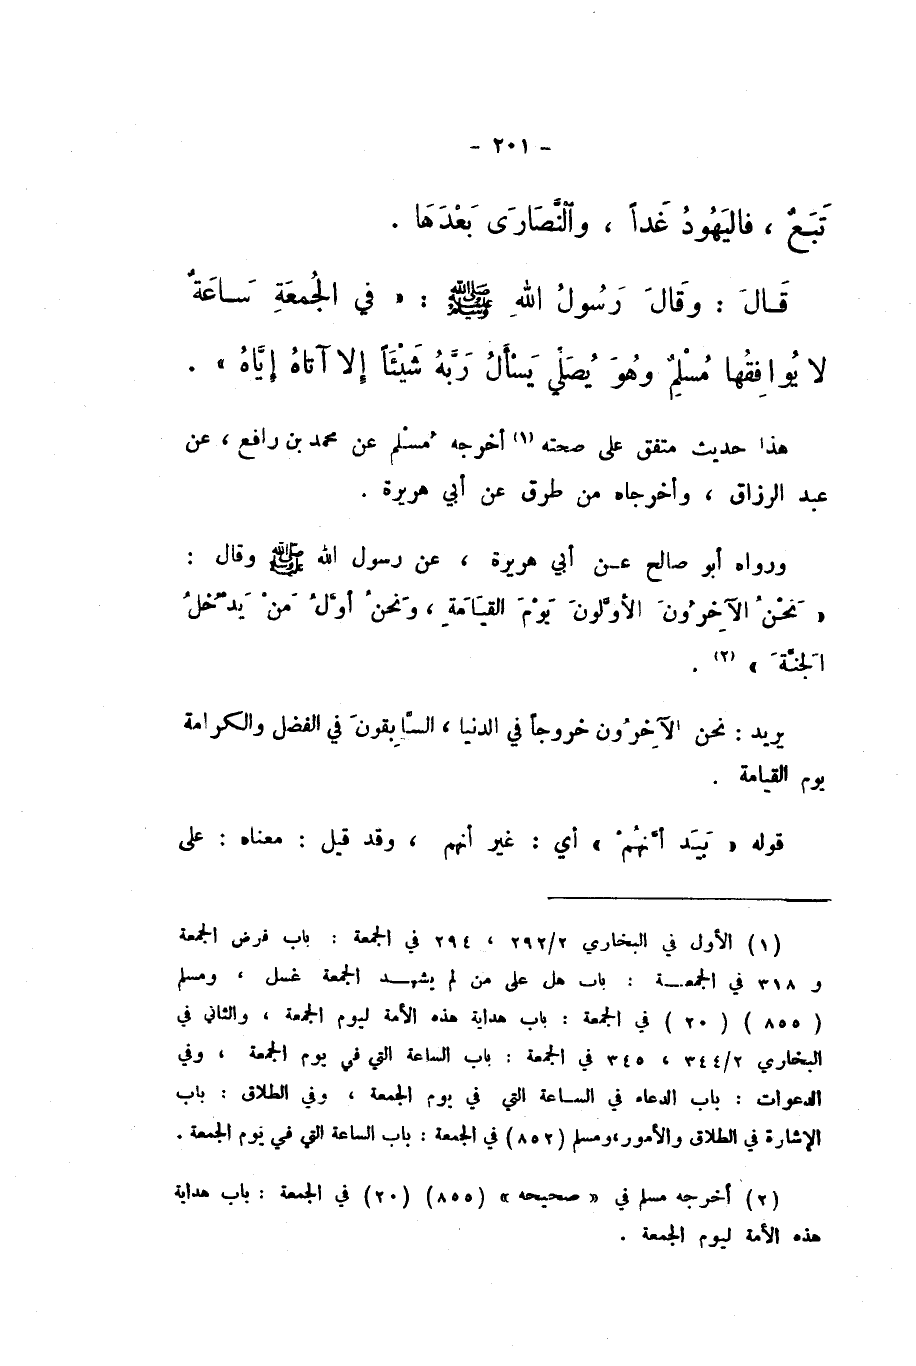 - ٢٠١ -
تَبَعٌ ، فاليَهُودُ غَداً ، والنَّصَارَى بَعْدَهَا .
قَالَ : وقَالَ رَسُولُ اللهِ ﷺ : « في الجُمعَةِ سَاعَةٌ
لا يُوافِقُها مُسْلِمٌ وهُوَ يُصَلِّي يَسْأَلُ رَبَّهُ شَيْئَاً إلا آتاهُ إيَّاهُ » .
هذا حديث متفق على صحته (١) أخرجه مُسْلم عن محمد بن رافع ، عن
عبد الرزاق ، وأخرجاه من طرق عن أبي هريرة .
ورواه أبو صالح عن أبي هريرة ، عن رسول الله ﷺ وقال :
« نَحْنُ الآخِرُونَ الأوَّلونَ يَوْمَ القِيَامَةِ ، وَنحنُ أوَّلُ مَنْ يَدْخُلُ
الجَنَّةَ » (٢) .
يريد : نحن الآخِرُون خروجاً في الدنيا ، السَّابِقونَ في الفضل والكرامة
يوم القيامة .
قوله « بَيْدَ أَنَّهُمْ » أي : غير أنهم ، وقد قيل : معناه : على
(١) الأول في البخاري ٢٩٢/٢ ، ٢٩٤ في الجمعة : باب فرض الجمعة
و ٣١٨ في الجمعة : باب هل على من لم يشهد الجمعة غسل ، ومسلم
( ٨٥٥ ) ( ٢٠ ) في الجمعة : باب هداية هذه الأمة ليوم الجمعة ، والثاني في
البخاري ٣٤٤/٢ ، ٣٤٥ في الجمعة : باب الساعة التي في يوم الجمعة ، وفي
الدعوات : باب الدعاء في الساعة التي في يوم الجمعة ، وفي الطلاق : باب
الإشارة في الطلاق والأمور،ومسلم (٨٥٢) في الجمعة : باب الساعة التي في يوم الجمعة .
(٢) أخرجه مسلم في « صحيحه » (٨٥٥) (٢٠) في الجمعة : باب هداية
هذه الأمة ليوم الجمعة .